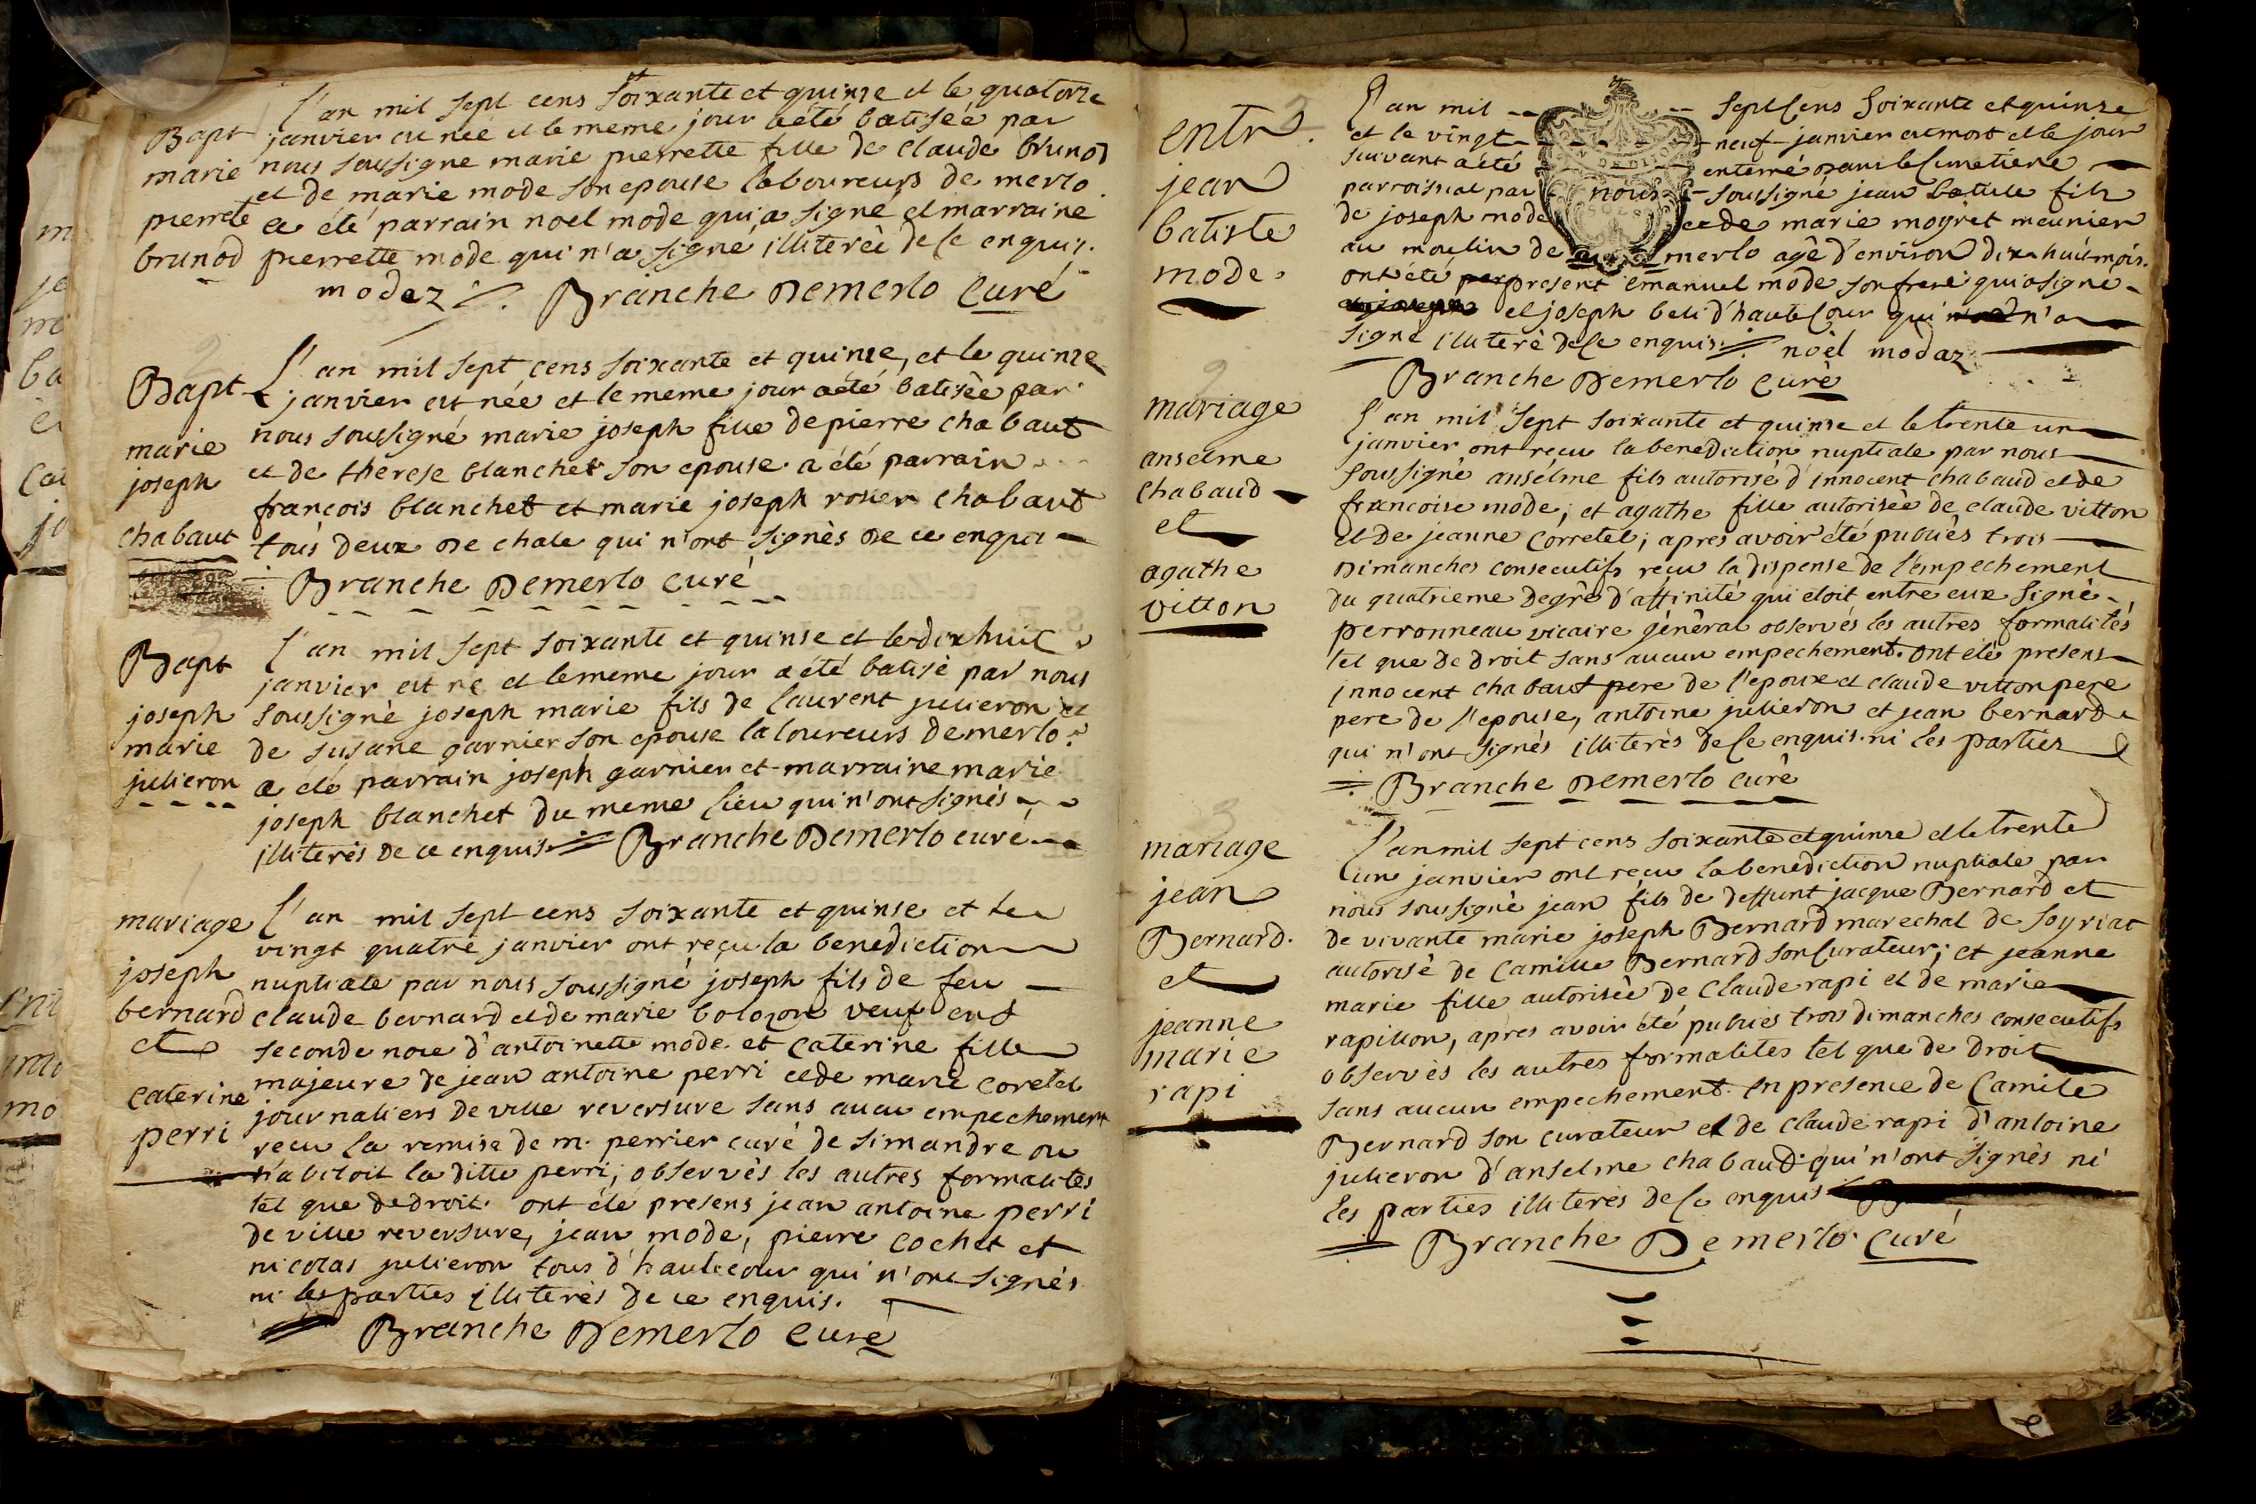 Bapt
marie
pierrete
brunod
L'an mil sept cens soixante et quinze et le quatorze
janvier est née et le meme jour a été batisée par
nous soussigne marie pierrette fille de claude brunod
et de marie mode son epouse laboureurs de merlo.
a été parrain noel mode qui a signé et marraine
pierrette mode qui n'a signé illiterée de ce enquis.
modaz Branche Demerlo Curé
Bapt
marie
joseph
chabaut
L'an mil sept cens soixante et quinze, et le quinze
janvier est née et le meme jour a été batisée par
nous soussigné marie joseph fille de pierre chabaut
et de therese blanchet son epouse a été parrain
francois blanchet et marie joseph rosier chabaut
tous deux de chale qui n'ont signés de ce enquis
Branche Demerlo curé
Bapt
joseph
marie
julieron
L'an mil sept soixante et quinse et le dix huit
janvier est né et le meme jour a été batisé par nous
soussigné joseph marie fils de laurent julieron et
de susane garnier son epouse laboureurs de merlo.
a été parrain joseph garnier et marraine marie
joseph blanchet du meme lieu qui n'ont signés
illiterés de ce enquis Branche Demerlo curé
mariage
joseph
bernard
et
caterine
perri
L'an mil sept cens soixante et quinse et le
vingt quatre janvier ont reçu la benediction
nuptiale par nous soussigné joseph fils de feu
claude bernard et de marie bolozon veuf en
seconde noce d'antoinette mode. et caterine fille
majeure de jean antoine perri et de marie coretet
journaliers de ville reversure sans aucun empechement
reçu la remise de m. perrier curé de simandre ou
habitoit la ditte perri; observés les autres formalités
tel que de droit. ont été presens jean antoine perri
de ville reversure, jean mode, pierre cochet et
nicolas julieron tous d'hautecour qui n'ont signés
ni les parties illiterés de ce enquis.
Branche Demerlo curé
entr.
jean
batiste
mode.
L'an mil sept cens soixante et quinze
et le vingt neuf janvier est mort et le jour
suivant a été enterré dans le cimetiere
parroissial par nous soussigné jean batiste fils
de joseph mode et de marie moyret meunier
au moulin de merlo agé d'environ dix huit mois.
ont été present emanuel mode son frere qui a signé
et joseph beli d'hautecour qui n'a
signé illiteré de ce enquis noël modaz
Branche Demerlo curé
mariage
anselme
chabaud
et
agathe
vitton
L'an mil sept soixante et quinze et le trente un
janvier ont reçu la benediction nuptiale par nous
soussigné anselme fils autorisé d'innocent chabaud et de
francoise mode; et agathe fille autorisée de claude vitton
et de jeanne corretet; apres avoir été publiés trois
dimanches consecutifs reçu la dispense de l'empechement
du quatrieme degré d'affinité qui etoit entre eux signé
perronneau vicaire général observés les autres formalités
tel que de droit sans aucun empechement. ont été presens
innocent chabaut pere de l'epoux et claude vitton pere
pere de l'epouse, antoine julieron et jean bernard
qui n'ont signés illiterés de ce enquis. ni les parties
Branche Demerlo curé
mariage
jean
Bernard.
et
jeanne
marie
rapi
L'an mil sept cens soixante et quinze et le trente
un janvier ont reçu la benediction nuptiale par
nous soussigné jean fils de deffunt jacque Bernard et
de vivante marie joseph Bernard marechal de soyriat
autorisé de Camille Bernard son curateur; et jeanne
marie fille autorisée de Claude rapi et de marie
rapillon, apres avoir été publiés trois dimanches consecutifs
observés les autres formalites tel que de droit
sans aucun empechement. en presence de Camile
Bernard son curateur et de claude rapi d'antoine
julieron d'anselme chabaud. qui n'ont signés ni
les parties illiterés de ce enquis
Branche Demerlo. Curé